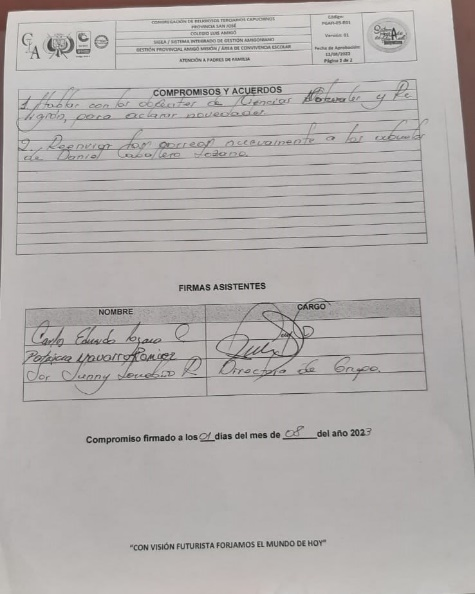 CONGREGACIÓN DE RELIGIOSOS TERCIARIOS CAPUCHINOS
PROVINCIA SAN JOSÉ
COLEGIO LUIS AMIGÓ
SIGEA / SISTEMA INTEGRADO DE GESTIÓN AMIGONIANO
GESTIÓN PROVINCIAL AMIGÓ MISIÓN / ÁREA DE CONVIVENCIA ESCOLAR
ATENCIÓN A PADRES DE FAMILIA
Código:
Versión: 01
Fecha de Aprobación:
Página 2 de 2
COMPROMISOS Y ACUERDOS
1. Hablar con los docentes de Ciencias Naturales y Re
ligión, para aclarar novedades.
2. Reenviar por correo nuevamente a los
de Daniel Caballero Lozano.
FIRMAS ASISTENTES
NOMBRE CARGO
Carlos Eduardo Lozano C.
Patricia Navarro Ramirez
Sor Sunny R. Directora de Grupo.
Compromiso firmado a los 01 dias del mes de 08 del año 2023
"CON VISIÓN FUTURISTA FORJAMOS EL MUNDO DE HOY"